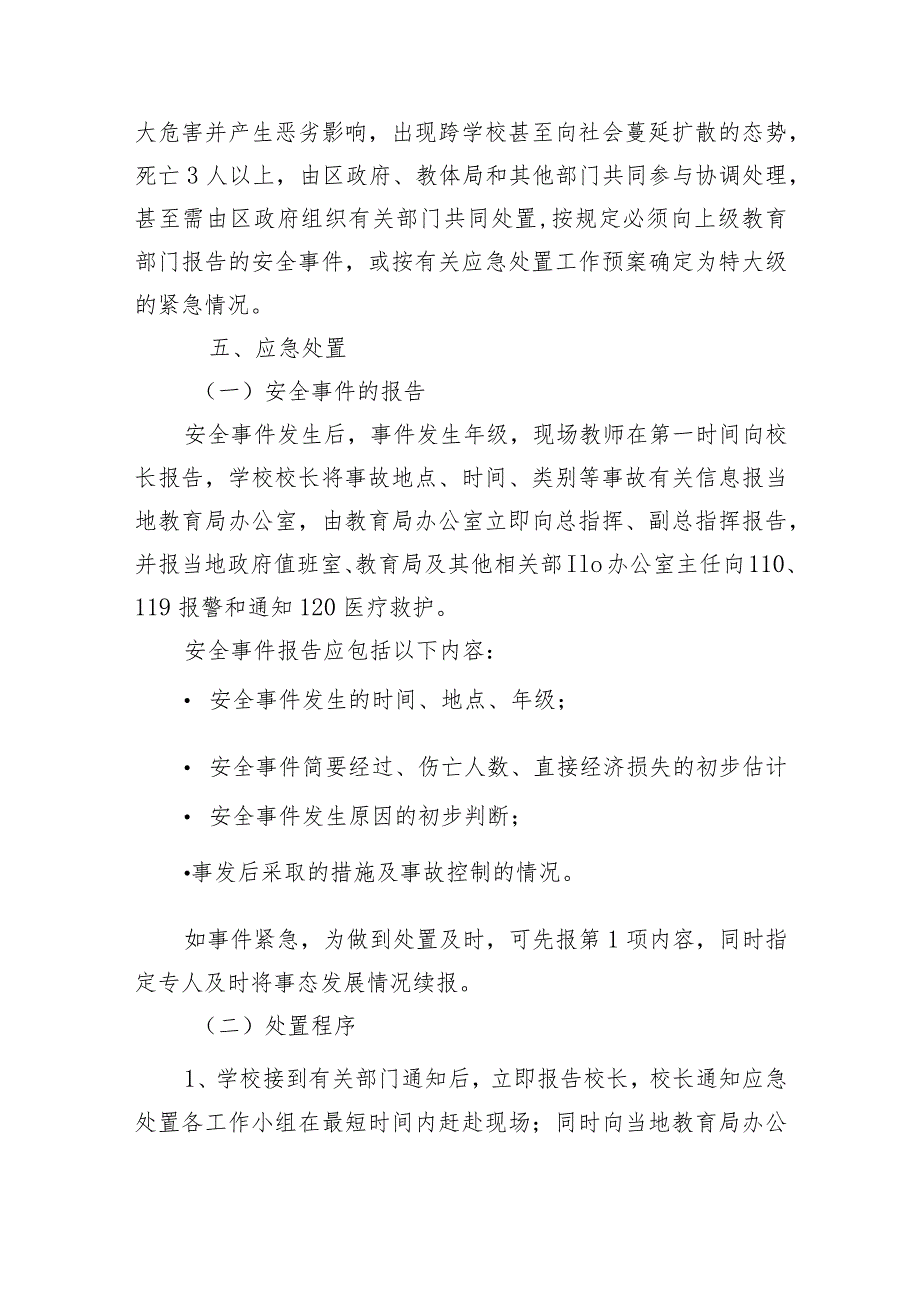 大危害并产生恶劣影响，出现跨学校甚至向社会蔓延扩散的态势，
死亡3人以上，由区政府、教体局和其他部门共同参与协调处理，
甚至需由区政府组织有关部门共同处置,按规定必须向上级教育
部门报告的安全事件，或按有关应急处置工作预案确定为特大级
的紧急情况。
五、应急处置
（一）安全事件的报告
安全事件发生后，事件发生年级，现场教师在第一时间向校
长报告，学校校长将事故地点、时间、类别等事故有关信息报当
地教育局办公室，由教育局办公室立即向总指挥、副总指挥报告，
并报当地政府值班室、教育局及其他相关部Ilo办公室主任向110、
119报警和通知120医疗救护。
安全事件报告应包括以下内容：
• 安全事件发生的时间、地点、年级；
• 安全事件简要经过、伤亡人数、直接经济损失的初步估计
• 安全事件发生原因的初步判断；
•事发后采取的措施及事故控制的情况。
如事件紧急，为做到处置及时，可先报第1项内容，同时指
定专人及时将事态发展情况续报。
（二）处置程序
1、学校接到有关部门通知后，立即报告校长，校长通知应急
处置各工作小组在最短时间内赶赴现场；同时向当地教育局办公